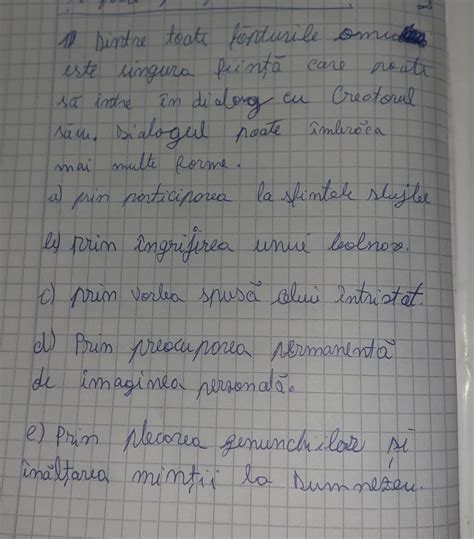 1) Dintre toate fonturile omul
este singura ființă care poate
să intre în dialog cu Creatorul
său. Dialogul poate îmbrăca
mai multe forme.
a) prin participarea la sfintele slujbe
b) prin îngrijirea unui bolnav.
c) prin vorba spusă celui întristat.
d) Prin preocuparea permanentă
de imaginea personală.
e) Prin plecarea genunchilor și
înălțarea minții la Dumnezeu.